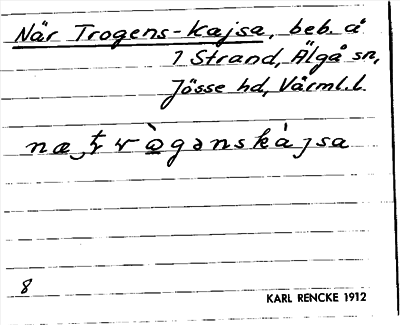 När Trogens-Kajsa, beb. å
1 Strand, Älgå sn,
Jösse hd, Värml. l.
8
KARL RENCKE 1912